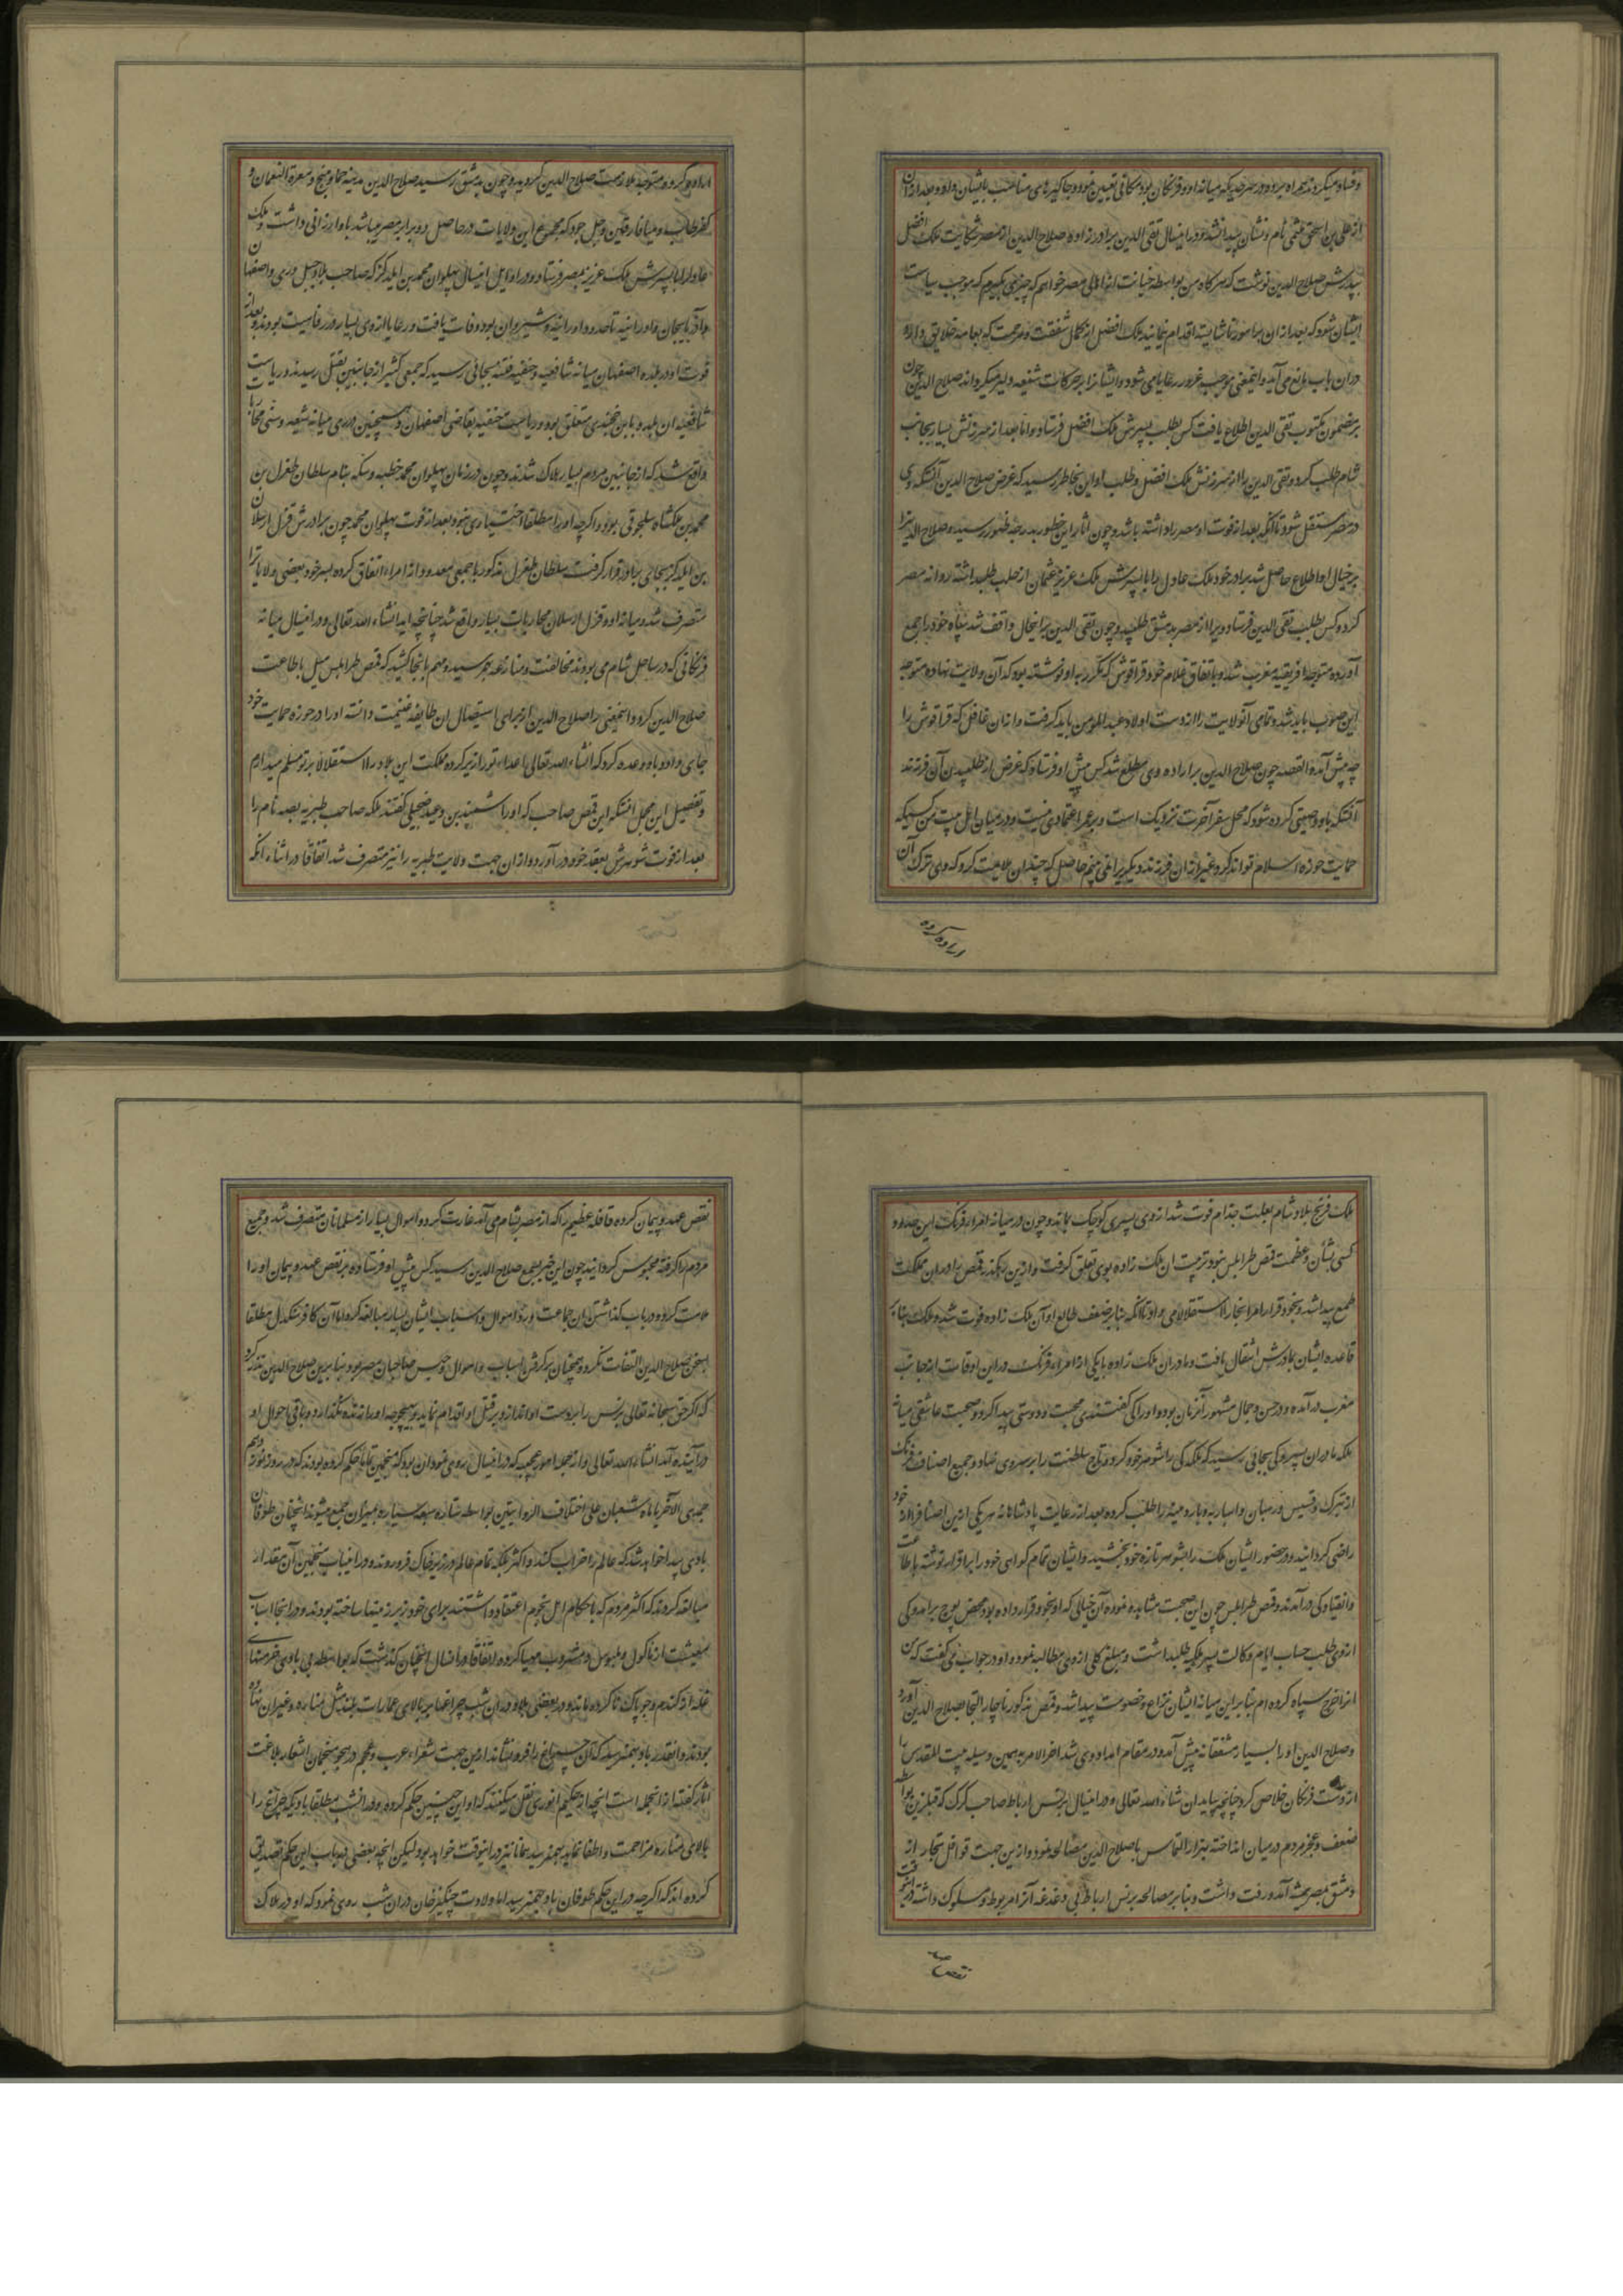 وفساد میکردند همراه میبرد و در سرحدی که میانه او و فرنگان بود مکانی تعیین نموده جاگیرهای مناسب بایشان داد و بعد از آن
از علی بن اسحق هیچ نام و نشان پیدا نشد و در اینسال تقی الدین برادرزاده صلاح الدین از مصر شکایت ملک افضل
بپدرش صلاح الدین نوشت که هرگاه من بواسطه خیانت از اهالی مصر خواهم که چیزی بگیرم که موجب سیاست
ایشان شود که بعد از آن برامور ناشایسته اقدام ننمایند ملک افضل از کمال شفقت و مرحمت که بعامه خلایق دارد
در آن باب مانع می آید و اینمعنی موجب غرور رعایا می شود و ایشانرا بر حرکات شنیعه دلیر میگرداند صلاح الدین چون
بر مضمون مکتوب تقی الدین اطلاع یافت کس بطلب پسرش ملک افضل فرستاد و اما بعد از بیرونش بسیار بجانب
شام طلب کرد و تقی الدین را از سرزنش ملک افضل و طلب او این بخاطر رسید که غرض صلاح الدین آنستکه وی
در مصر مستقل شود تا آنکه بعد از فوت او مصر را داشته باشد و چون آثار این خطور بدرجه ظهور رسید و صلاح الدین را
بر خیال او اطلاع حاصل شد برادر خود ملک عادل را با پسرش ملک عزیز عثمان از حلب طلب داشته روانه مصر
کرد و کس بطلب تقی الدین فرستاد و ویرا از مصر بدمشق طلبید و چون تقی الدین برینحال واقف شد سپاه خود را جمع
آورده متوجه افریقیه مغرب شد و باتفاق غلام خود قراقوش که مکرر به او نوشته بود که آن ولایت نهاده متوجه
این صوب باید شد و تمامی آنولایت را از دست اولاد عبدالمومن باید گرفت و از آن غافل که قراقوش را
چه پیش آمده القصه چون صلاح الدین بر اراده وی مطلع شد کس پیش او فرستاد که غرض از طلبیدن آن فرزند
آنستکه باو وصیتی کرده شود که محل سفر آخرت نزدیک است و بر عمر اعتمادی نیست و در میان اهل بیت من کسیکه
حمایت حوزه اسلام تواند کرد غیر از آن فرزند دیگریرا نمی بینم حاصل که چندان ملایمت کرد که وی ترک آن
اراده کرده
اراده کرده و متوجه ملازمت صلاح الدین گردید و چون بدمشق رسید صلاح الدین مدینه حما و منبج و معرة النعمان و
کفرطاب و میافارقین و جبل جور که مجموع این ولایات در حاصل دو برابر مصر میباشد باو ارزانی داشت و ملک
عادلرا با پسرش ملک عزیز بمصر فرستاد و در اوایل اینسال پهلوان محمد بن ایلدگز که صاحب بلاد جبل و ری و اصفهان
و آذربایجان و ارانیه تا حدود ارانیه و شیروان بود وفات یافت و رعایا از وی بسیار در رفاهیت بودند و بعد از
فوت او در بلده اصفهان میانه شافعیه و حنفیه فتنه بجائی رسید که جمعی کثیر از جانبین بقتل رسیدند و ریاست
شافعیه آن بلده با ابن خجندی متعلق بود و ریاست حنفیه بقاضی اصفهان و همچنین در ری میانه شیعه و سنی محاربات
واقع شد که از جانبین مردم بسیار هلاک شدند و چون در زمان پهلوان محمد خطبه و سکه بنام سلطان طغرل بن
محمد بن ملکشاه سلجوقی بود و اگرچه او را مطلقا اختیاری نبود و بعد از فوت پهلوان محمد چون برادرش قزل ارسلان
بن ایلدگز بجای برادر قرار گرفت سلطان طغرل مذکور با جمعی معدود از امراء اتفاق کرده بسر خود بعضی ولایات را
متصرف شد و میانه او و قزل ارسلان محاربات بسیار واقع شد چنانچه آید انشاء الله تعالی و در اینسال میانه
فرنگانی که در ساحل شام می بودند مخالفت و منازعه بهم رسید و مهم بانجا کشید که قمص طرابلس میل باطاعت
صلاح الدین کرد و اینمعنی را صلاح الدین از برای استیصال آن طایفه غنیمت دانسته او را در حوزه حمایت خود
جای داد و باو وعده کرد که انشاء الله تعالی اعداء تو را زیر کرده مملکت این بلاد را استقلالا بر تو مسلم میدارم
و تفصیل این مجمل آنستکه این قمص صاحب که او را شمیدبن دیمید صنجیلی گفتند ملکه صاحب طبریه بصه نام را
بعد از فوت شوهرش بعقد خود در آورد و از آن جهت ولایت طبریه را نیز متصرف شد اتفاقا در اثناء آنکه
ملک فرنج بلاد شام بعلت جذام فوت شد از وی پسری کوچک بماند و چون در میانه امراء فرنگ این حدود
کسی بشان و عظمت قمص طرابلس نبود تربیت آن ملک زاده بوی تعلق گرفت و ازین رهگذر قمص را در آن مملکت
طمع پیدا شد و بخود قرار امر آنجا را استقلالا می داد تا آنکه بنابر ضعف طالع او آن ملک زاده فوت شد و ملک بنابر
قاعده ایشان بمادرش انتقال یافت و مادر آن ملک زاده با یکی از امراء فرنگ در این اوقات از جانب
مغرب در آمده و در حسن و جمال مشهور آنزمان بود و او را کی گفتندی محبت و دوستی پیدا کرد و صحبت عاشقی میانه
ملکه مادر آن پسر و کی بجائی رسید که ملکه کی را شوهر خود کرد و تاج سلطنت را بر سر وی نهاد و جمیع اصناف فرنگ
از تبرک و قسیس و رهبان و اسبار به و بارونیه را طلب کرده بعد از رعایت پادشاهانه هر یکی از این اصناف را از خود
راضی گردانید و در حضور ایشان ملک را بشوهر تازه خود بخشید و ایشان تمام گواهی خود را بر اقرار نوشته باطاعت
و انقیاد کی در آمدند و قمص طرابلس چون این صحبت مشاهده نموده آن خیالی که او بخود قرار داده بود محض پوچ برآمد و کی
از وی طلب حساب ایام وکالت پسر ملکیه طلبداشت و مبلغ کلی از وی مطالبه نمود و او در جواب می گفت که من
انرا خرج سپاه کرده ام بنابر این میانه ایشان نزاع و خصومت پیدا شد و قمص مذکور ناچار التجا بصلاح الدین آورد
و صلاح الدین او را بسیار مشفقانه پیش آمد و در مقام امداد وی شد آخر الامر به همین وسیله بیت المقدس را
از دست فرنگان خلاص کرد چنانچه بیاید ان شاء الله تعالی و در اینسال برنس ارباط صاحب کرک که قبل ازین بواسطه
ضعف و عجز مردم در میان انداخته بهزار التماس با صلاح الدین مصالحه نمود و ازین جهت قوافل تجار از
دمشق بمصر همیشه آمد و رفت داشت و بنابر مصالحه برنس ارباط بی دغدغه آنراه مربوط و مسلوک داشته در اینوقت
نقض عهد
نقض عهد و پیمان کرده قافله عظیم را که از مصر بشام می آمد غارت کرد و اموال بسیار از مسلمانان متصرف شد و جمیع
مردم را گرفته محبوس گردانید چون این خبر بسمع صلاح الدین رسید کس پیش او فرستاده بر نقض عهد و پیمان او را
ملامت کرده و در باب گذاشتن آن جماعت و رد اموال و اسباب ایشان بسیار مبالغه کرد اما آن کافر سنگدل مطلقا
بسخن صلاح الدین التفات نکرد و همچنان بر گرفتن اسباب و اموال و حبس صاحبان مصر بود بنابرین صلاح الدین نذر کرد
که اگر حق سبحانه تعالی برنس را بدست او اندازد بر قتل او اقدام نماید و بهیچوجه او را زنده نگذارد و باقی احوال او
در آینده آید انشاء الله تعالی و از جمله امور عجیبه که در اینسال روی نمود آن بود که منجمین تماما حکم کرده بودند که در روز نوزدهم
جمیدی الآخر یا ماه شعبان علی اختلاف الروایتین بواسطه ستاره سبعه سیاره بمیزان جمع میشوند آنچنان طوفان
بادی پیدا خواهد شد که عالم را خراب کند و اکثر بلکه تمام عالم در زیر خاک فرو روند و در اینباب منجمین آن مقدار
مبالغه کردند که اکثر مردم که باحکام اهل نجوم اعتقاد داشتند برای خود زیر زمینها ساخته بودند و در آنجا اسباب
معیشت از مأکول و ملبوس و مشروب مهیا کرده و اتفاقا در آنسال آنچنان گذشت که بواسطه بی بادی خرمنهای
غله از گندم و جو پاک ناکرده ماند و در بعضی بلاد در آن شب چراغها بر بالای عمارات بلند مثل مناره و غیر آن نهاده
بودند و آنقدر باد بهم نرسید که آن چراغ را فرو نشاند ازین جهت شعراء عرب و عجم در هجو منجمان اشعار بلاغت
آثار گفتند از آنجمله است آنچه از حکیم انوری نقل میکنند که او این چنین حکم کرده بود و در آنشب مطلقا بادیکه چراغ را
بالای مناره مزاحمت و اطفا نماید بهم نرسید همانا نیز در آنوقت خواهد بود ولیکن آنچه بعضی در باب این حکم تصدیق
کرده اند که اگر چه در این حکم طوفان باد بهم نرسید اما ولادت چنگیز خان در آن شب روی نمود که او در هلاک